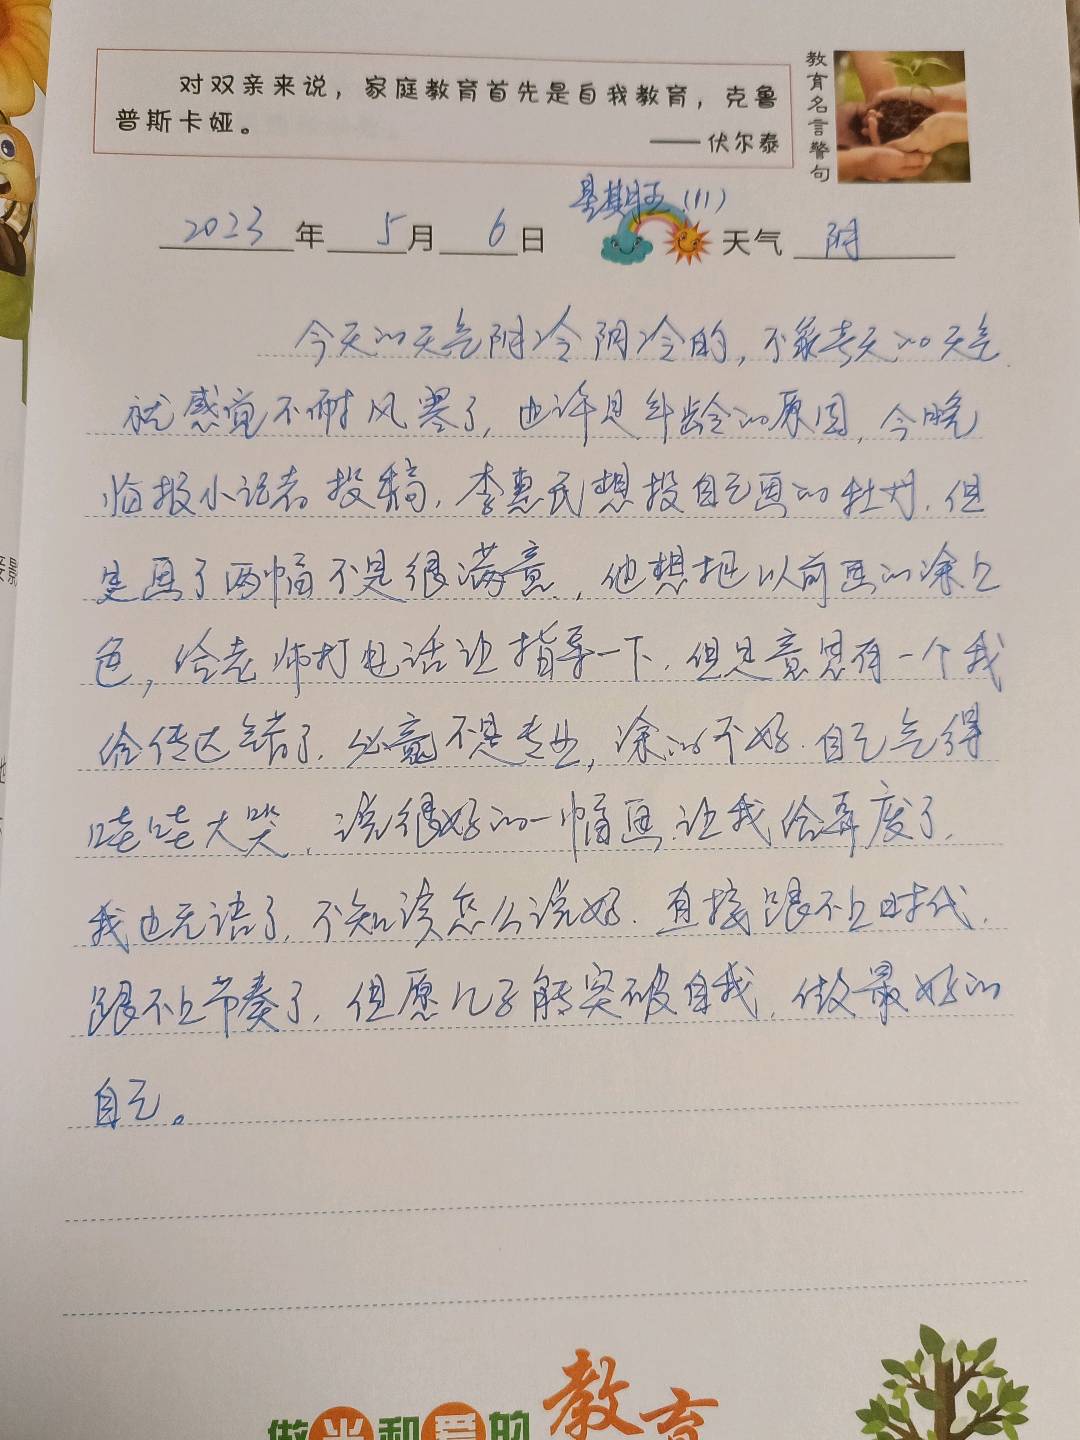 对双亲来说，家庭教育首先是自我教育，克鲁
普斯卡娅。
——伏尔泰
教育名言警句
星期五（11）
2023年5月6日 天气 阴
今天的天气阴冷阴冷的，不象春天的天气
就感觉不耐风寒了，也许是年龄的原因，今晚
临报小记者投稿，李惠民想投自己画的牡丹，但
是画了两幅不是很满意，他想把以前画的涂上
色，给老师打电话让指导一下，但是意思有一个我
给传达错了，必竟不是专业，涂的不好，自己气得
哇哇大哭，说很好的一幅画，让我给弄废了，
我也无语了，不知该怎么说好，直接跟不上时代，
跟不上节奏了，但愿儿子能突破自我，做最好的
自己。
做光和爱的教育